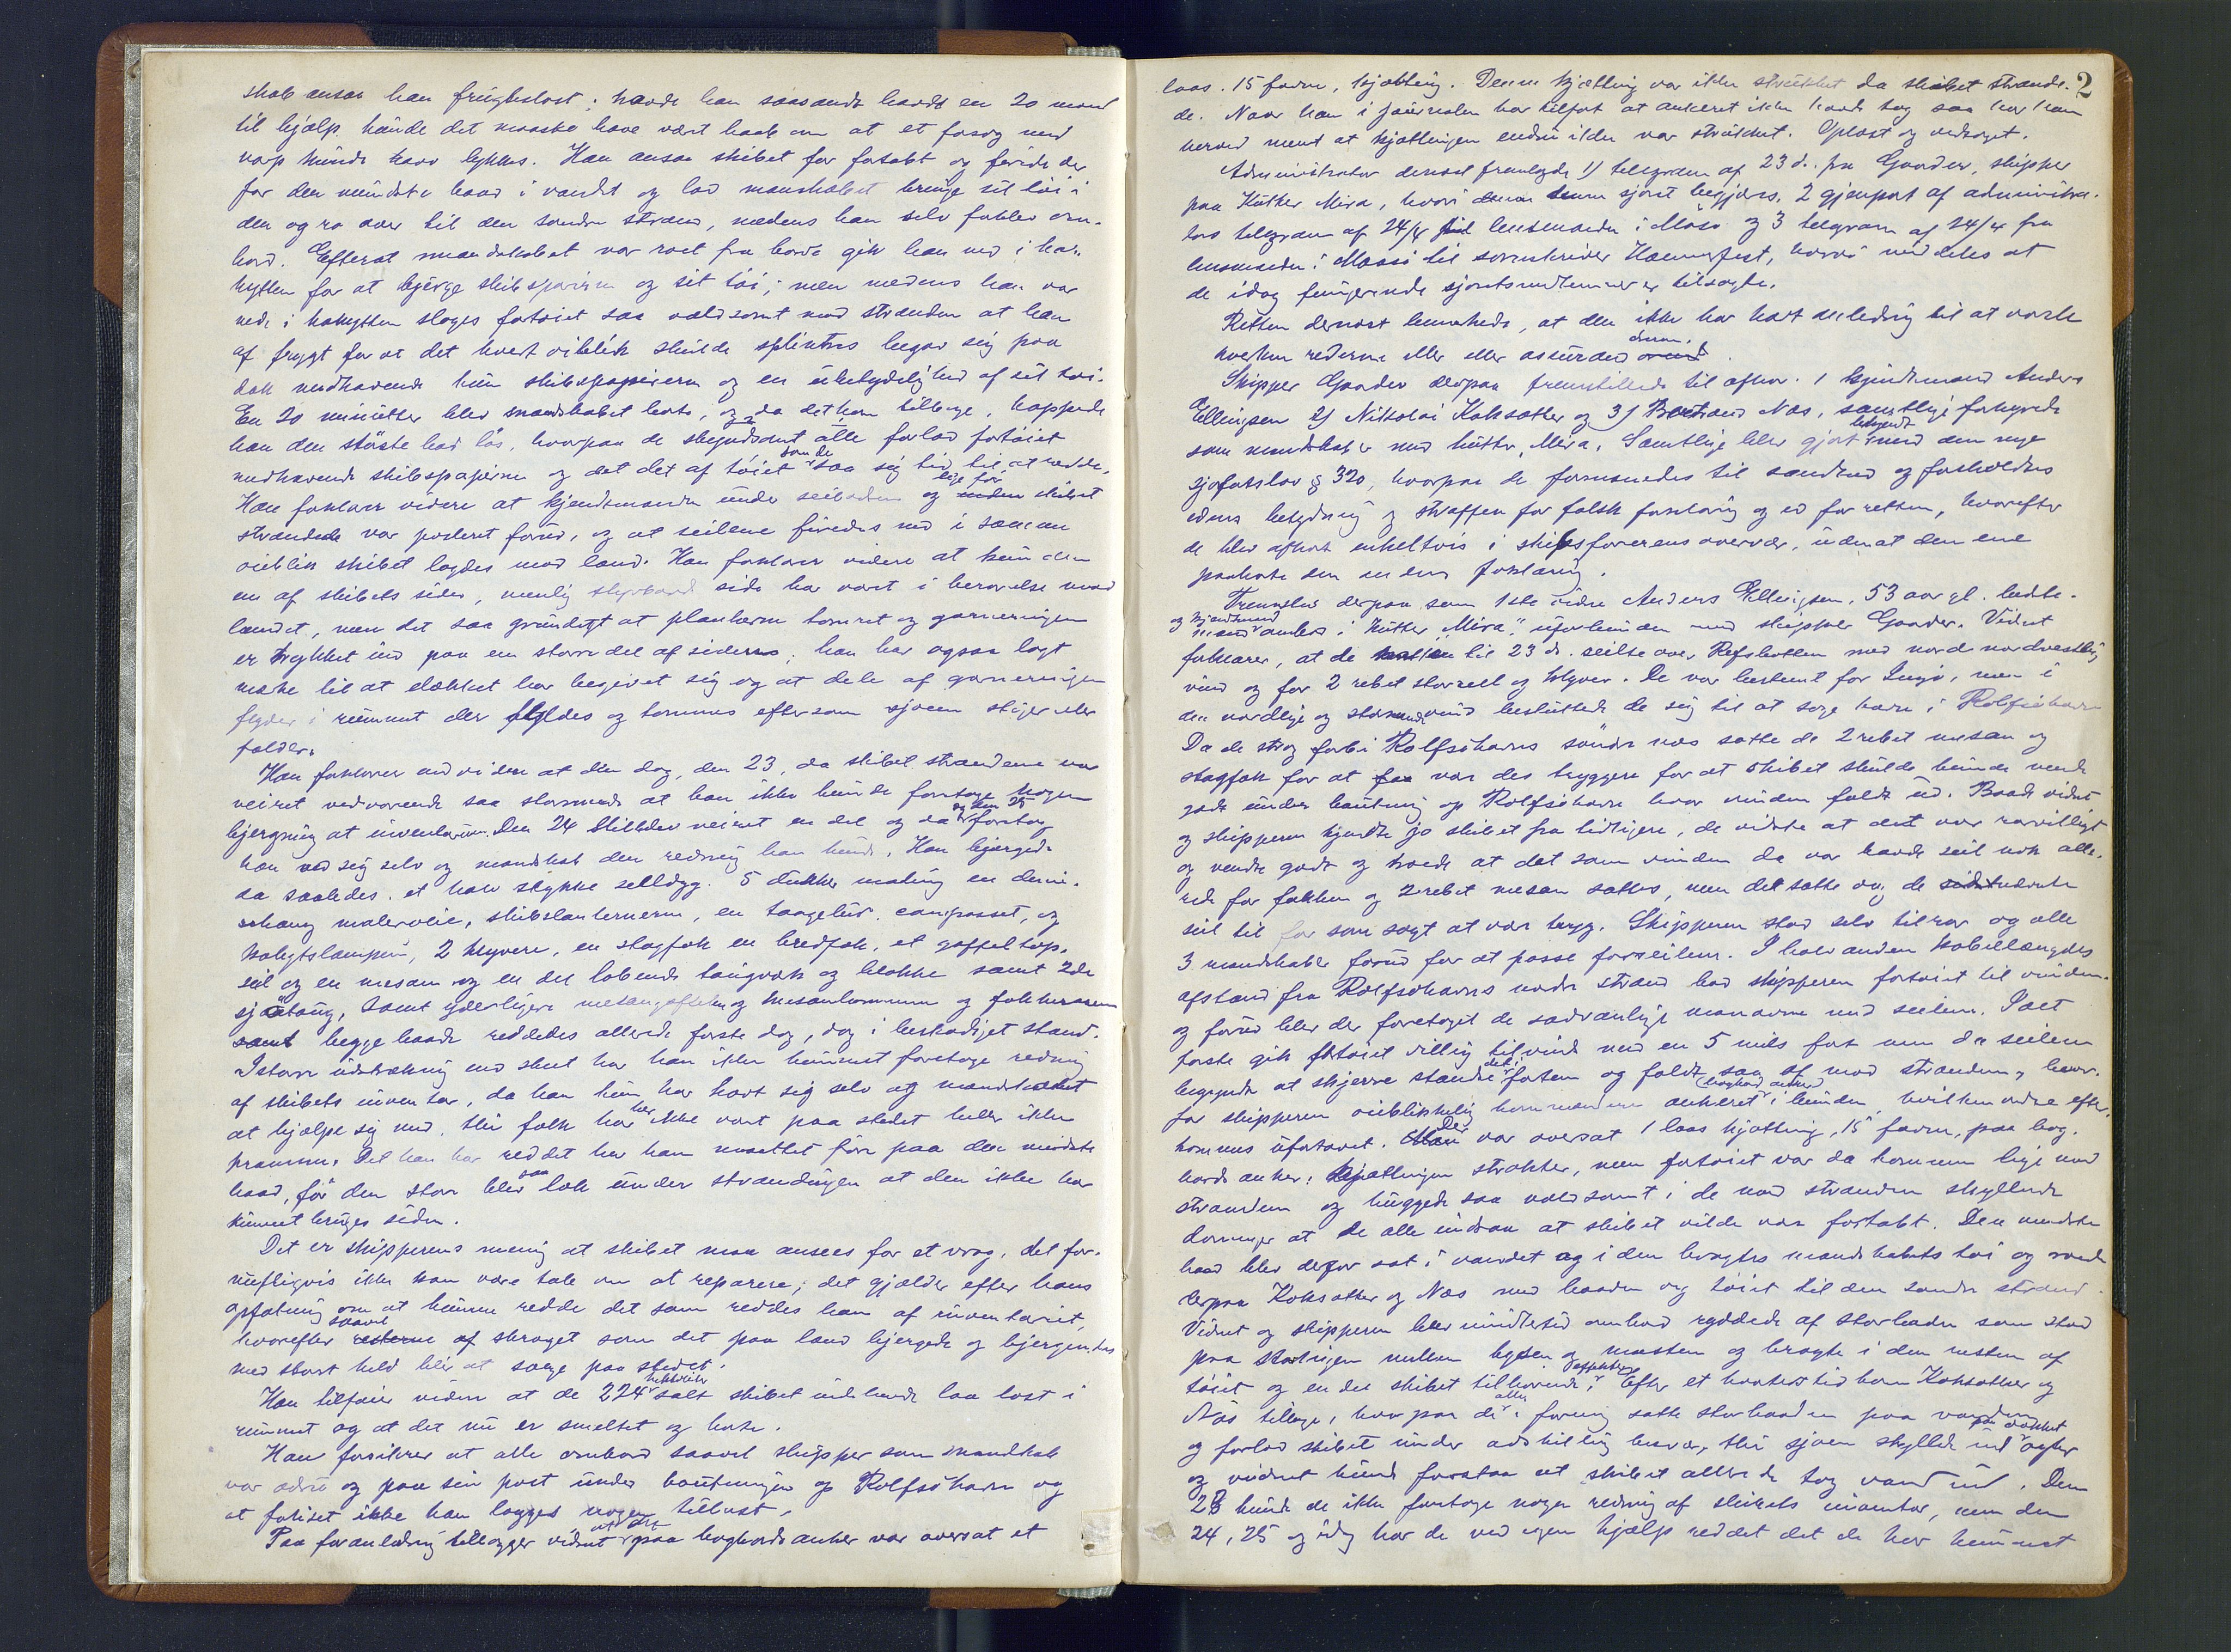 skab ansaa han frugtesløst; havde han saasandt havdt en 20 mand
til hjælp kunde det maaske have vært haab om at et forsøg med
varp kunde have lykkes. Han ansaa skibet for fortabt og firede der
for den mindste baad i vandet og lod mandskabet bringe sit tøi i
den og ro over til den søndre strand, medens han selv forblev om-
bord. Efterat mandskabet var roet fra borde gik han ned i ka-
hytten for at bjerge skibspapirerne og sit tøi; men medens han var
nede i kahytten sloges fartøiet saa voldsomt mod stranden at han
af frygt for at det hvert øiblik skulde splintres begav sig paa
dæk medhavende kun skibspapirerne og en ubetydelighed af sit tøi.
En 20 minutter blev mandskabet borte, og da det kom tilbage, kappede
han den største baad løs, hvorpaa de alle forlod fartøiet
medhavende skibspapirerne og det det af tøiet som de saa sig tid til at redde.
Han forklarer videre at kjendtmanden under seiladsen og lige før skibet
strandede var posteret forud, og at seilene firedes ned i samme
øieblik skibet lagdes mod land. Han forklarer videre at kun den
ene af skibets sider, nemlig styrbord side har vært i berørelse med
landet, men det saa grundigt at plankerne tømret og garneringen
er trykket ind paa en større del af siderne; han har ogsaa lagt
mærke til at dækket har begivet sig og at dele af garneringen
flyder i rummet der fyldes og tømmes eftersom sjøen stiger eller
falder.
Han forklarer endvidere at den dag, den 23, da skibet strandede var
veiret vedvarende saa stormende at han ikke kunde foretage nogen
bjergning af inventarium. Den 24 stilledes veiret en del og da og den 25 foretog
han ved sig selv og mandskab den redning han kunde. Han bjergede
da saaledes et halv stykke seildug. 5 dunker maling en demi-
johang maleroie, skibslanternerne, en taagelur, compasset, og
kahytslampen, 2 klyvere, en stagfok en bredfok, et gaffeltop-
seil og en mesan og en del løbende taugværk og blokke samt 2de
sjøtaug, samt yderligere mesangaffelen og mesanbommen og
samt begge baade reddedes allerede første dag, dog i beskadiget stand.
I større udstrækning end skeet har han ikke kunnet foretage redning
af skibets inventar, da han kun har havt sig selv og mandskabet
at hjælpe sig med, thi folk har her ikke vært paa stedet heller ikke
prammer. Det han har reddet har han maattet føre paa den mindste
baad, før den store blev saa læk under strandingen at den ikke har
kunnet bruges siden.
Det er skipperens mening at skibet maa ansees for et vrag, det for-
nuftigvis ikke kan være tale om at reparere; det gjælder efter hans
opfatning om at kunne redde det som reddes kan af inventariet,
hvorefter saavel resterne af skroget som det paa land bjergede og bjergendes
med størst held blir at sælge paa stedet.
Han tilføier videre at de 224 hektoliter salt skibet indehavde laa løst i
rummet og at det nu er smeltet og borte.
Han forsikrer at alle ombord saavel skipper som mandskab
var ædru og paa sin post under boutningen op Rolfsøhavn og
at forliset ikke kan lægges nogen tillast.
Paa foranledning tillægger vidnet at der paa bagbords anker var oversat et
2
laas. 15 favne, kjætting. Denne kjætting var ikke strukket da skibet strande-
de. Naar han i journalen har tilført at ankeret ikke havde tag saa har han
herved ment at kjættingen endnu ikke var strukket. Oplæst og vedtaget.
Administrator dernæst fremlagde 1) telegram af 23 d. fra Gaader, skipper
paa Kutter Mira, hvori denne sjøret begjæres. 2 gjenpart af administra-
tors telegram af 24/4 til lensmanden i Maasø og 3 telegram af 24/4 fra
lensmanden i Maasø til sorenskriver Hammerfest, hvori meddeles at
de idag fungerende sjøretsmedlemmer er tilsagte.
Retten dernæst bemærkede, at den ikke har havt anledning til at varsle
hverken rederne eller assurandørerne.
Skipper Gaader derpaa fremstillede til afhør. 1 kjendtmand Anders
Ellingsen 2) Nikolai Koksætter og 3) Næs, samtlige forhyrede
som mandskab med kutter Mira. Samtlige blev gjort bekjendt med den nye
sjøfartslov § 320, hvorpaa de formanedes til sandhed og foreholdtes
edens betydning og straffen for falsk forklaring og ed for retten, hvorefter
de blev afhørt enkeltvis i skibsførerens overvær, uden at den ene
paahørte den anden forklaring.
Fremstod derpaa som 1ste vidne Anders Ellingsen, 53 aar gl. bedste-
mand og kjendtmand ombord i kutter "Mira", uforbunden med skipper Gaader. Vidnet
forklarer, at de til 23 ds. seilte over Refsbotten med nord nordvestlig
vind og for 2 rebet storseil og klyver. De var bestemt for Ingø, men i
den nordlige og stormende vind besluttede de sig til at søge havn i Rolfsøhavn
Da de strøg forbi Rolfsøhavns søndre næs satte de 2 rebet mesan og
stagfok for at være des tryggere for at skibet skulde kunde vende
godt under boutning op Rolfsøhavn hvor vinden faldt ud. Baade vidnet
og skipperen kjendte jo skibet fra tidligere, de vidste at det var rorvilligt
og vendte godt og troede at det som vinden da var havde seil nok alle-
rede før fokken og 2 rebet mesan sattes, men det satte og de nævnte
seil til for som sagt at være tryg. Skipperen stod selv tilrors og alle
3 mandskaber forud for at passe forseilene. I halv anden kabellængdes
afstand fra Rolfsøhavns nordre strand lod skipperen fartøiet til vinden
og forud blev der foretaget de sædvanlige manøvre med seilene. I det
første gik fartøiet villig tilvinds med en 5 mils fart men da seilene
begyndte at skjerre standse det i farten og faldt saa af mod stranden, hvor-
for skipperen øieblikkelig kommanderer ankeret (bagbord anker) i bunden, hvilken ordre efter-
kommes ufortøvet. Der var oversat 1 laas kjætting, 15 favne, paa bag-
bords anker; kjættingen strakter, men fartøiet var da kommen lige mod
stranden og huggede saa voldsomt i de mod stranden skyllende
dønninger at de alle indsaa at skibet vilde være fortabt. Den mindste
baad blev derfor sat i vandet og i den bragtes mandskabets tøi og roede
derpaa Koksætter og Næs med baaden og tøiet til den søndre strand.
Vidnet og skipperen blev imidlertid ombord ryddede af storbaden som stod
paa mellem bysen og masten og bragte i den resten af
tøiet og en del skibet tilhørende effekter. Efter et kvarters tid kom Koksætter og
Næs tilbage, hvorpaa de alle i forening satte storbaaden paa vandet
og forlod skibet under adskillig besvær, thi sjøen skyllede ind paa dækket agter
og vidnet kunde forstaa at skibet allerede tog vand ind. Den
23 kunde de ikke foretage nogen redning af skibets inventar, men den
24, 25 og idag har de ved egen hjælp reddet det de har kunnet